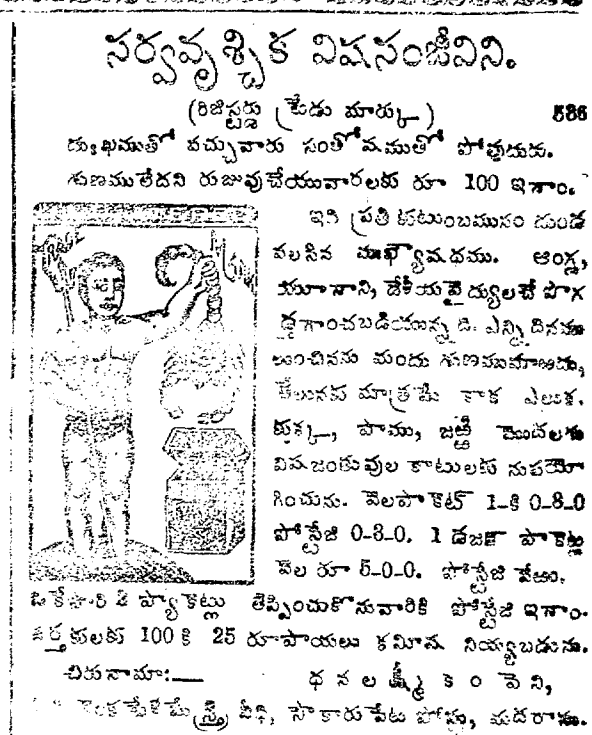 సర్వవృశ్చిక విషసంజీవిని.
(రిజిస్టర్డు ట్రేడు మార్కు) 586
దుఃఖముతో వచ్చువారు సంతోషముతో పోతుదురు.
గుణములేదని రుజువుచేయువారలకు రూ 100 ఇనాం.
ఇది ప్రతి కుటుంబమునం దుండ
వలసిన ముఖ్యౌషధము. ఆంగ్ల,
యూనాని, దేశీయవైద్యులచే పొగ
డ్తగాంచబడియున్న ది. ఎన్ని దినము
లుంచినను మందు గుణముమాఱదు,
తేలునకు మాత్రమే కాక ఎలుక,
కుక్క, పాము, జఱ్ఱి మొదలగు
విషజంతువుల కాటులకు నుపయో
గించును. వెలపాకెట్ 1-కి 0-8-0
పోస్టేజి 0-8-0. 1 డజను పాకెట్ల
వెల రూ 5-0-0. పోస్టేజి వేఱు.
ఒకేసారి 2 ప్యాకెట్లు తెప్పించుకొనువారికి పోస్టేజి ఇనాం.
వర్తకులకు 100 కి 25 రూపాయలు కమీషన్ నియ్యబడును.
చిరునామా:— ధనలక్ష్మీ కంపెని,
వీథి, సౌకారుపేట పోస్టు, మదరాసు.